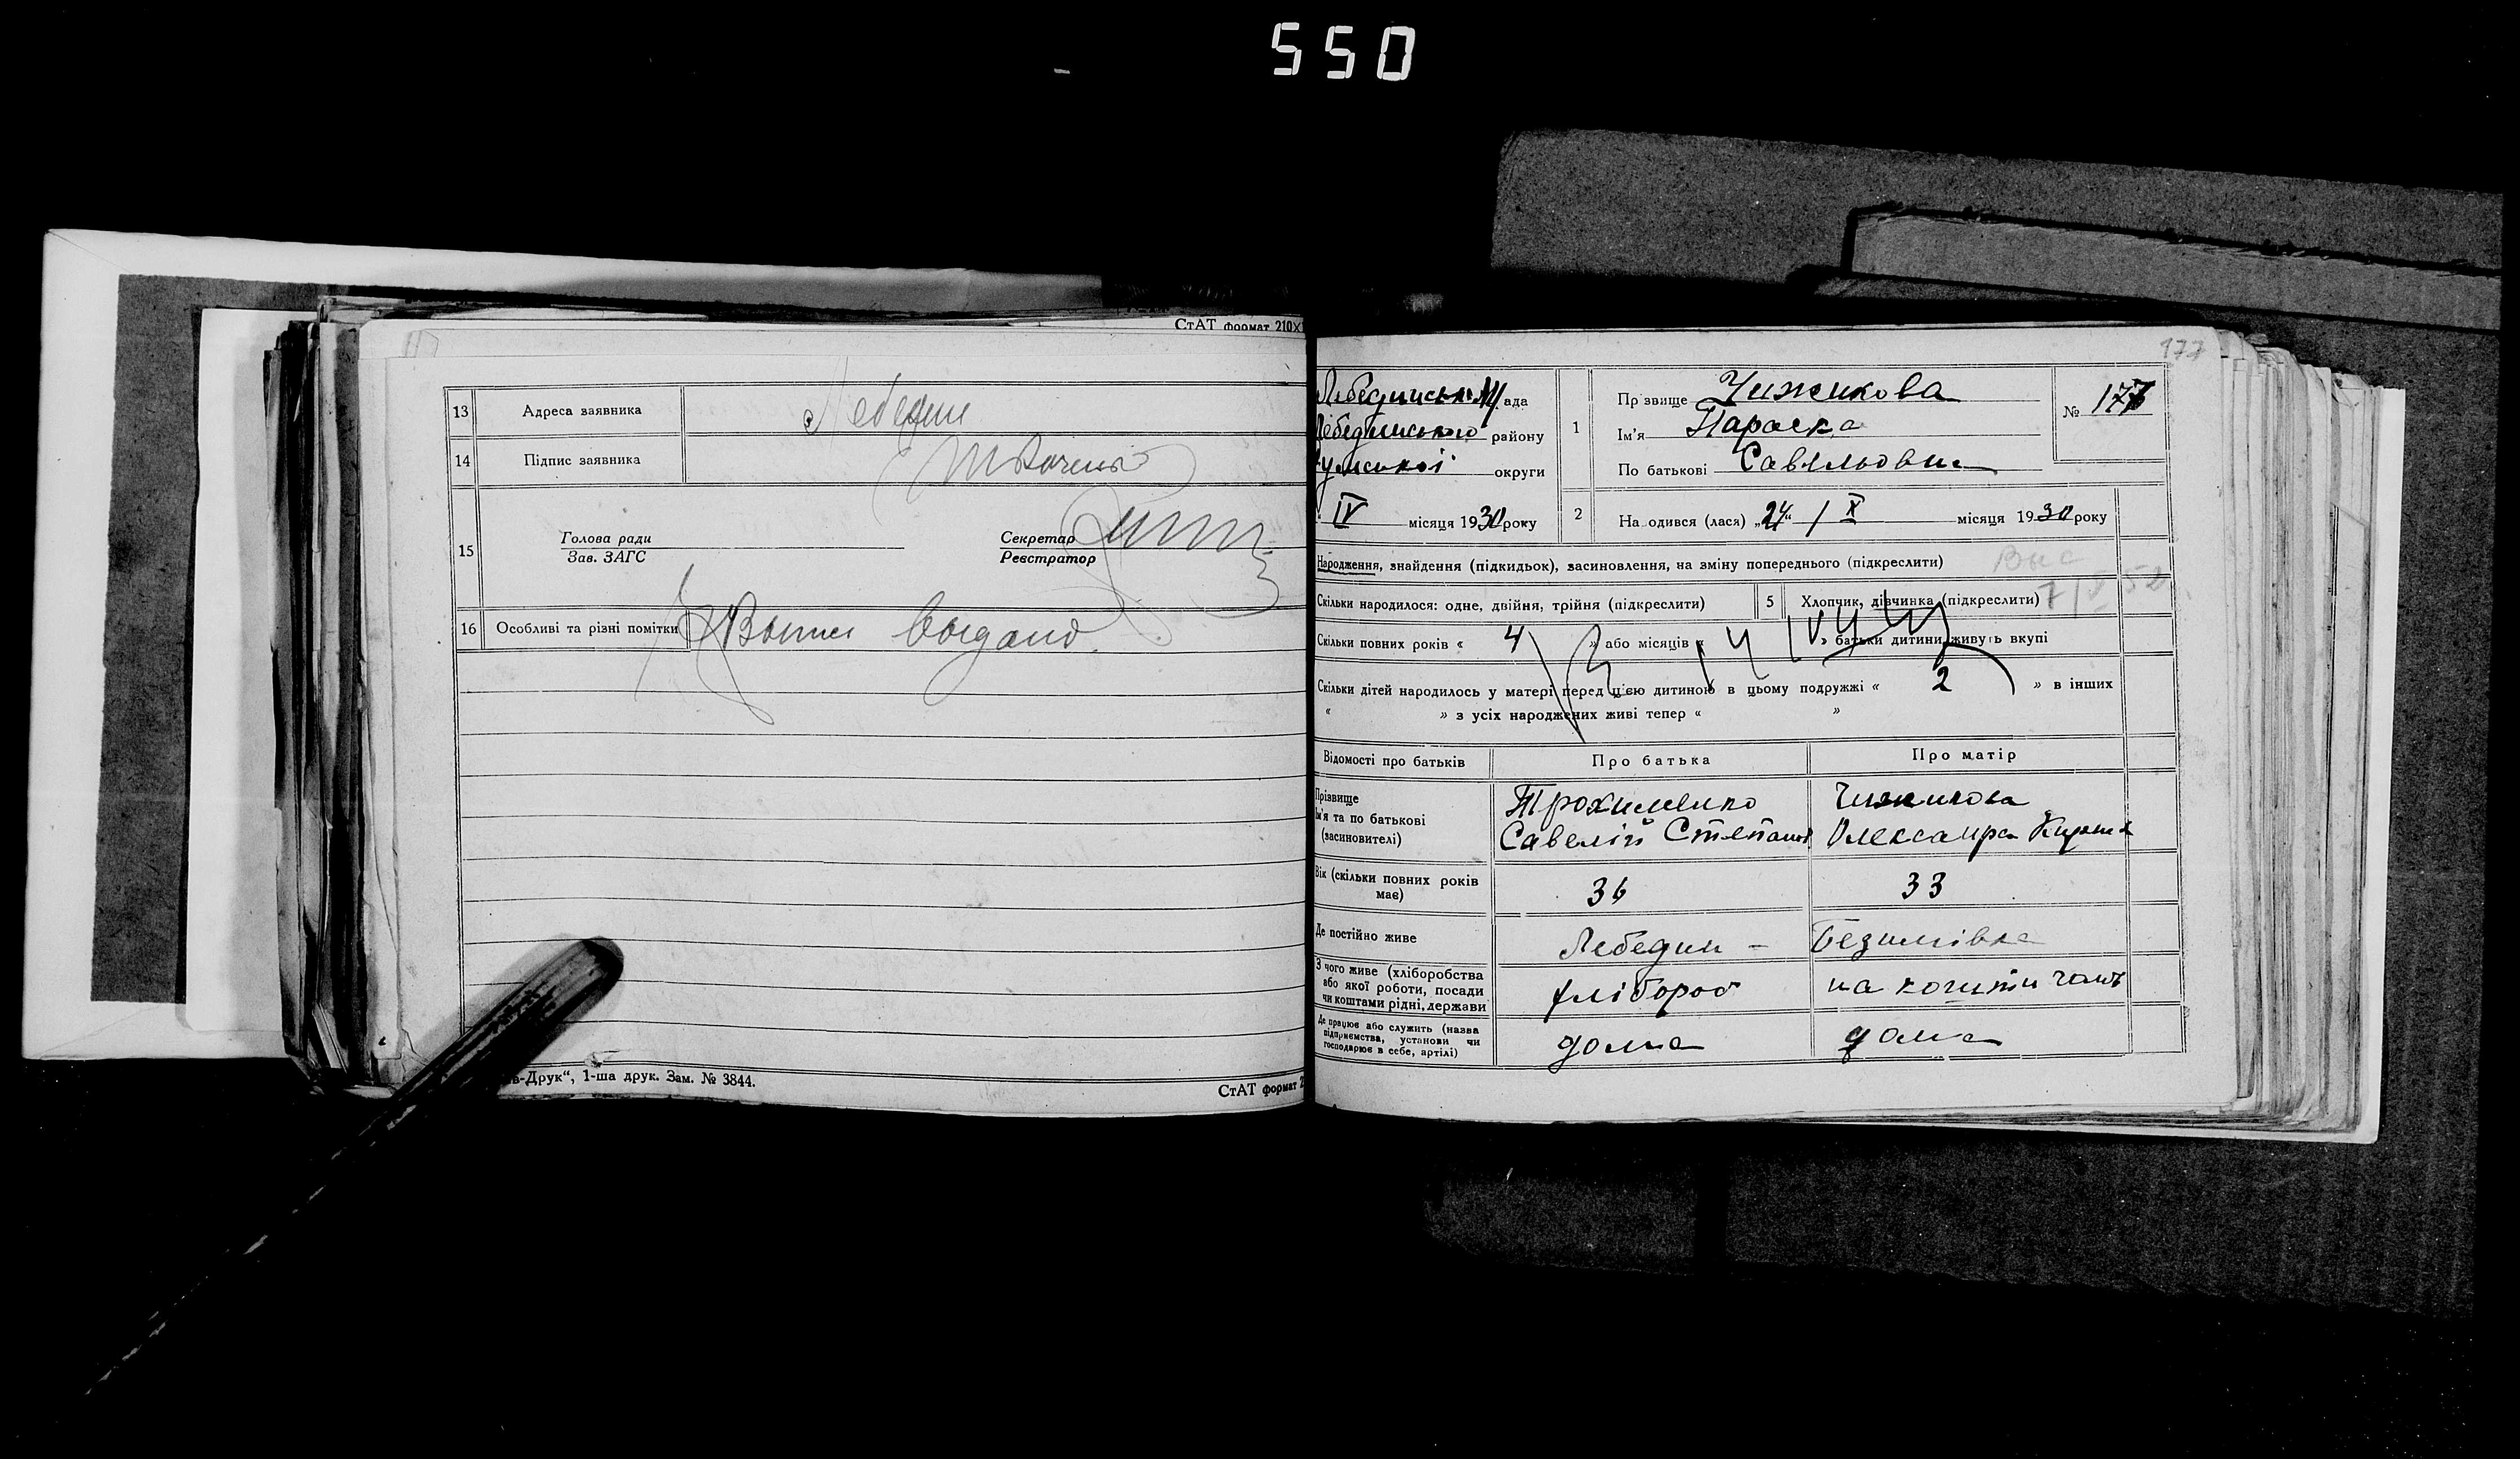 550
СтАТ формат 210×
13 Адреса заявника Лебедин
14 Підпис заявника
15 Голова ради
Зав. ЗАГС
Секретар
Реєстратор
16 Особливі та різні помітки
-Друк“, 1-ша друк. Зам. № 3844.
СтАТ формат 2
177
ада
району
округи
IV місяця 1930 року
1 Пр звище Чижикова
Ім'я Параска
По батькові Савельовна
№ 177
2 На одився (лася) „24“ / X місяця 1930 року
Народження, знайдення (підкидьок), засиновлення, на зміну попереднього (підкреслити)
Скільки народилося: одне, двійня, трійня (підкреслити) 5 Хлопчик, дівчинка (підкреслити)
Скільки повних років « 4 » або місяців « » батьки дитини живуть вкупі
Скільки дітей народилось у матері перед цією дитиною в цьому подружжі « 2 » в інших
« » з усіх народжених живі тепер « »
Відомості про батьків Про батька Про матір
Прізвище Трохименко Чижикова
Ім'я та по батькові
(засиновителі) Савелій Степанов Олександра
Вік (скільки повних років
має) 36 33
Де постійно живе Лебедин – Безимівка
З чого живе (хліборобства
або якої роботи, посади
чи коштами рідні, держави хлібороб на кошти
Де працює або служить (назва
підприємства, установи чи
господарює в себе, артілі) дома дома